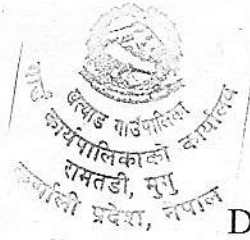 खत्याड गाउँपालिका
गाउँ कार्यपालिकाको कार्यालय
रामतडी, मुगु
कर्णाली प्रदेश, नेपाल
D